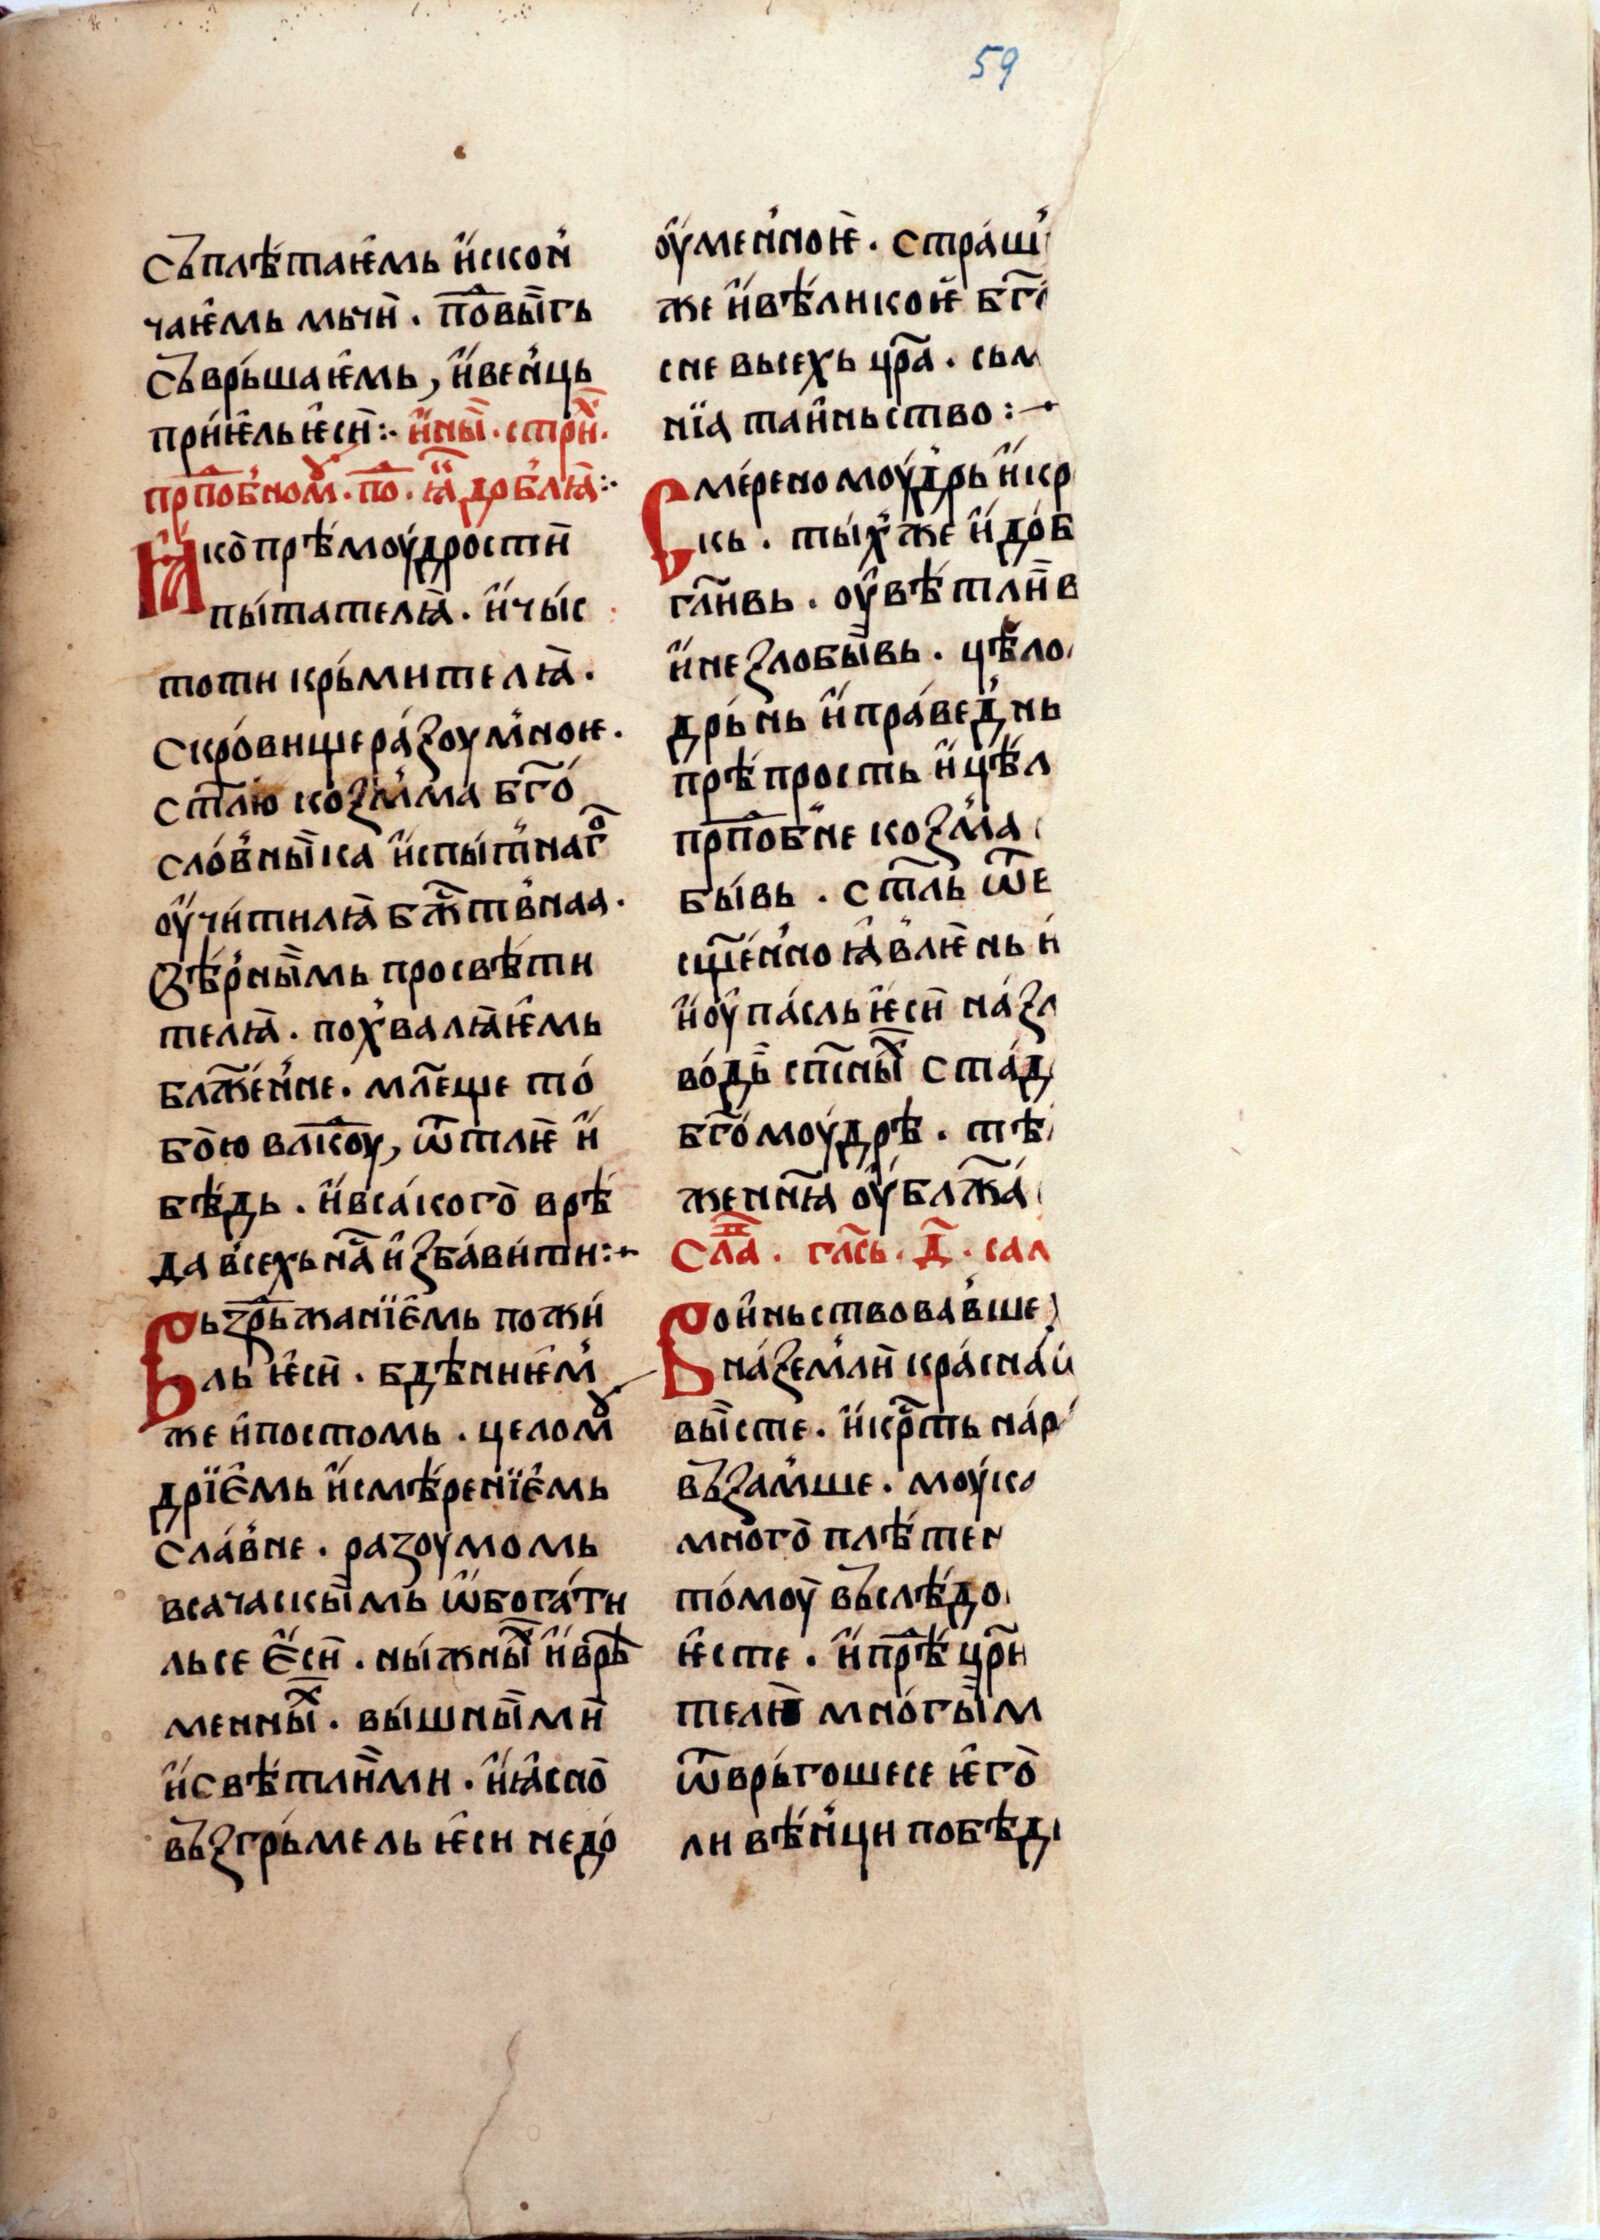 59
съплѣ́таѥ҆мь и҆скон҆
чаѥ҆мь мьчи̏ . по̑вы̏гь
съврь́шаѥ҆мь, и҆вен҆ць
прїиѥ҆ль ѥ҆си̏ :· и҆ны̏ . стри҃х .
прп҃об҆номꙋ . по҃ . ꙗ҆ доб҆лꙗ̀ :·
Ꙗ҆ко̀ прѣ́моу́дрости̏
пы́тателꙗ̀ . и҆ чы́с
тоти крь́мителꙗ̀ .
скро́вище ра́ꙁоум҆ноѥ .
ст҃лю̀ коꙁ҆ма бг҃о́
сло́в҆ны̏ка и҆спы́т҆наго
оу҆чи́тилꙗ̀ бж҃тв҆наа .
ꙁѣ́р҆ны̏мь просвѣ́ти
телꙗ̀ . пох҆валꙗ̀ѥ҆мь
блж҃е́н҆не . мл҃еще то́
бо̀ю влⷦ҇коу, ѿ тлѥ̀ и҆
бѣ́дь . и҆ вса́кого̀ врѣ́
да в҆сехь на̑ и҆ꙁба́вити :·
Въꙁдрь́жанїѥ҆мь пожи́
ль ѥ҆си̏ . бдѣ́ниѥ҆м҆
же и҆ постомь . целомꙋ
дрїе҆мь и҆ смѣ́ренїе҆мь
сла́в҆не . раꙁоумомь
всачаскы̏мь ѡ҆бога́ти
льсе е҆си̏ . ны́жны̏х и҆ врѣ̑
менны̏х . вы́шны̏ми̏
и҆ свѣ́тли̏ми . и҆ ꙗ҆сно̀
въꙁгрь́мель ѥ҆си недо́
оу҆мен҆ноѥ̀ . стра́ш҆
же и҆ вѣ́ликоѥ̀ бг҃
сне вьсехь цр҃а . сьм
нїа таи҆ньство :·
Смѣ́реномоу́д҆рь и҆ кр
кь . ты́х҆же и҆ до́б
гл҃ивь . оу҆вѣ́тли̏в
и҆ неꙁлобы̏вь . цѣ́ло
дрь́нь и҆ пра́вед҆нь
прѣ́прость и҆ цѣ́л
прп҃об҆не коꙁ҆ма
бы́вь . ст҃ль ѿе
сщ҃е́н҆но ꙗ҆в҆лѥ̀нь и҆
и҆ оу҆па́сль ѥ҆си̏ на́ ꙁл
во́дь̏ сп҃сны̏х ста́д
бг҃о́моу́дрѣ . тѣ́
жен҆нїꙗ оу҆блж҃а́
Сла҃ . гл҃сь . д҃ . сал
Вои҆ньствовав҆ше
на́ ꙁем҆ли̏ кра́сна́и
вы̏сте . и҆ крⷭ҇ть на́ р
въꙁам҆ше . моу́ко
много̀ плѣ́тен
то́моу̏ въслѣ́до
ѥ҆сте . и҆ прⷣѣ цр҃и
телю̏ мно́гы̏м
ѿврь́гошесе ѥ҆го̀
ли вѣ́н҆ци побѣ́д